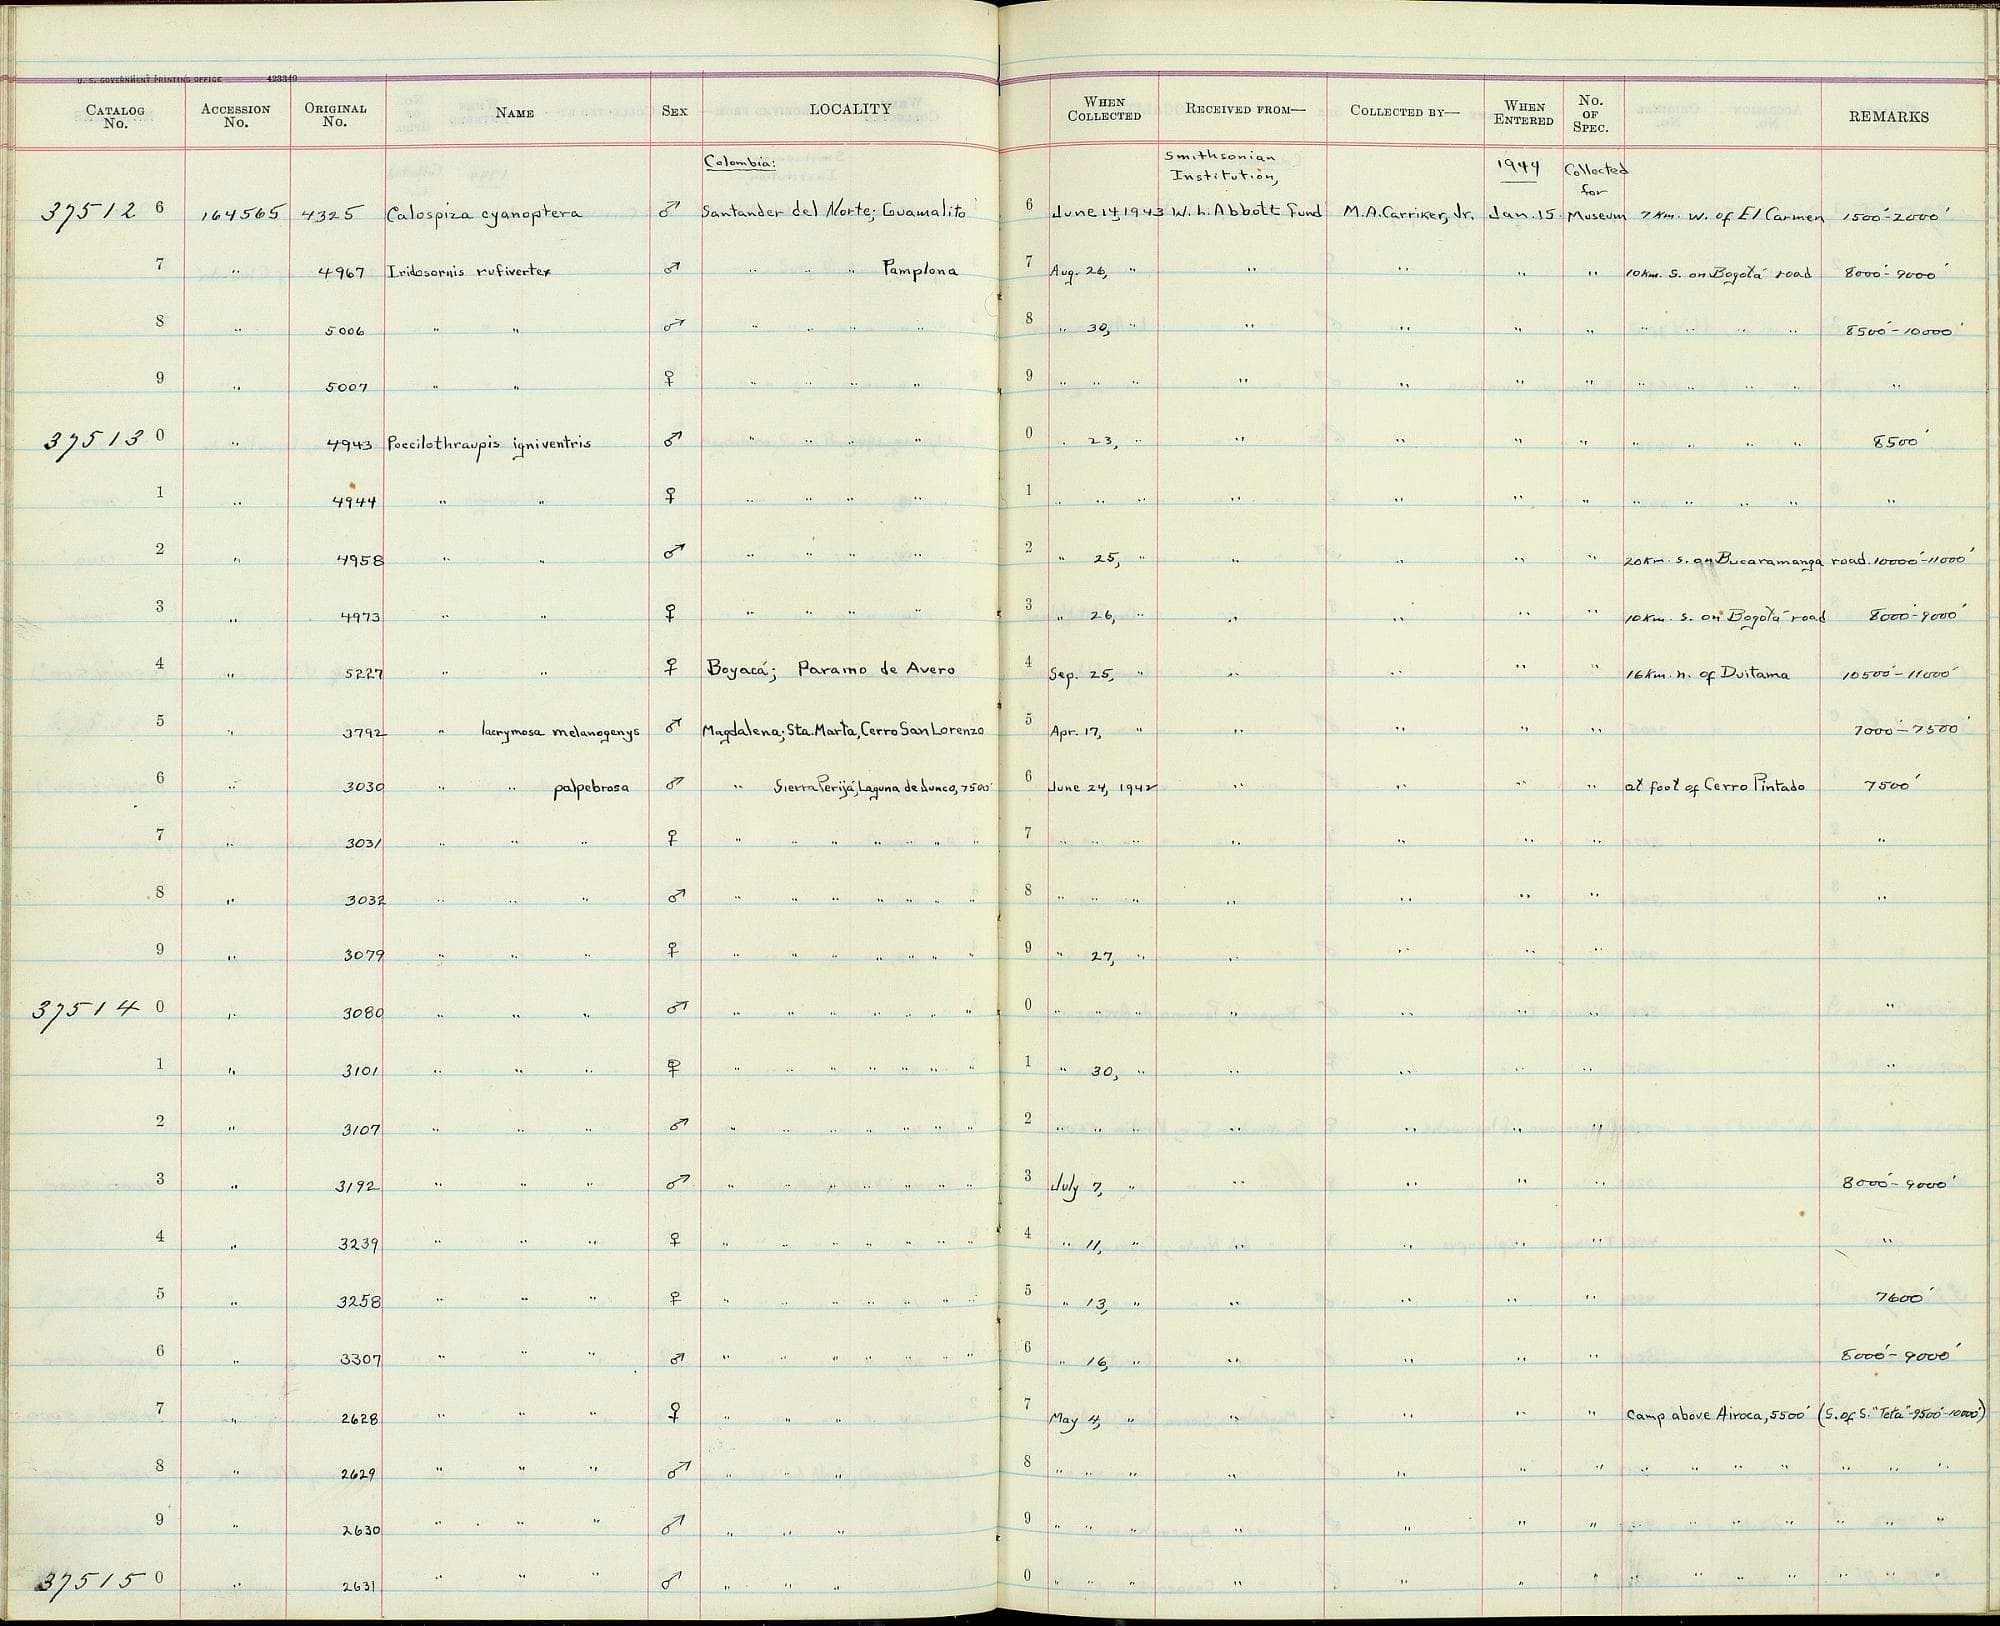 U. S. GOVERNMENT PRINTING OFFICE 423340
CATALOG No. ACCESSION No. ORIGINAL No. NAME SEX LOCALITY WHEN COLLECTED RECEIVED FROM— COLLECTED BY— WHEN ENTERED No. OF SPEC. REMARKS
Colombia: Smithsonian Institution, 1944 Collected for
37512 6 164565 4325 Calospiza cyanoptera ♂ Santander del Norte; Guamalito 6 June 14, 1943 W. L. Abbott Fund M.A. Carriker, Jr. Jan. 15 Museum 7 Km. W. of El Carmen 1500'-2000'
7 " 4967 Iridosornis rufivertex ♂ " " " Pamplona 7 Aug. 26, " " " " " 10 Km. S. on Bogotá road 8000'-9000'
8 " 5006 " " ♂ " " " " 8 " 30, " " " " " " " " " 8500'-10000'
9 " 5007 " " ♀ " " " " 9 " " " " " " " " " " " "
37513 0 " 4943 Poecilothraupis igniventris ♂ " " " " 0 " 23, " " " " " " " " " 8500'
1 " 4944 " " ♀ " " " " 1 " " " " " " " " " " " "
2 " 4958 " " ♂ " " " " 2 " 25, " " " " " 20 Km. S. on Bucaramanga road. 10000'-11000'
3 " 4973 " " ♀ " " " " 3 " 26, " " " " " 10 Km. S. on Bogotá road 8000'-9000'
4 " 5227 " " ♀ Boyacá; Paramo de Avero 4 Sep. 25, " " " " " 16 Km. n. of Duitama 10500'-11000'
5 " 3792 " lacrymosa melanogenys ♂ Magdalena; Sta. Marta, Cerro San Lorenzo 5 Apr. 17, " " " " " 7000'-7500'
6 " 3030 " " palpebrosa ♂ " Sierra Perijá, Laguna de Junco, 7500' 6 June 24, 1942 " " " " at foot of Cerro Pintado 7500'
7 " 3031 " " " ♀ " " " " " " " 7 " " " " " " " "
8 " 3032 " " " ♂ " " " " " " " 8 " " " " " " " "
9 " 3079 " " " ♀ " " " " " " " 9 " 27, " " " " "
37514 0 " 3080 " " " ♂ " " " " " " " 0 " " " " " " " "
1 " 3101 " " " ♀ " " " " " " " 1 " 30, " " " " " "
2 " 3107 " " " ♂ " " " " " " " 2 " " " " " " "
3 " 3192 " " " ♂ " " " " " " " 3 July 7, " " " " " 8000'-9000'
4 " 3239 " " " ♀ " " " " " " " 4 " 11, " " " " " "
5 " 3258 " " " ♀ " " " " " " " 5 " 13, " " " " " 7600'
6 " 3307 " " " ♂ " " " " " " " 6 " 16, " " " " " 8000'-9000'
7 " 2628 " " " ♀ " " " 7 May 4, " " " " " Camp above Airoca, 5500' (S. of S. "Teta"-9500'-10000')
8 " 2629 " " " ♂ " " " 8 " " " " " " " " " " " " " "
9 " 2630 " " " ♂ " " " 9 " " " " " " " " " " " " " "
37515 0 " 2631 " " " ♂ " " " 0 " " " " " " " " " " " " " "